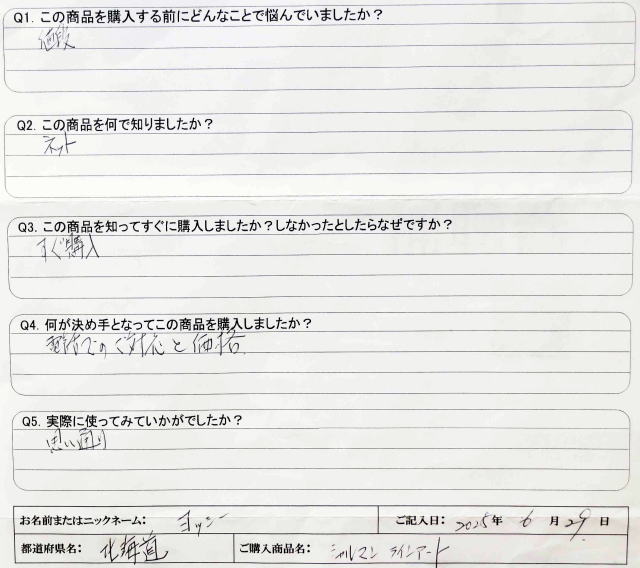 Q1. この商品を購入する前にどんなことで悩んでいましたか？
値段
Q2. この商品を何で知りましたか？
ネット
Q3. この商品を知ってすぐに購入しましたか？しなかったとしたらなぜですか？
すぐ購入
Q4. 何が決め手となってこの商品を購入しましたか？
電話でのご対応と価格
Q5. 実際に使ってみていかがでしたか？
思い通り
お名前またはニックネーム： ヨッシー ご記入日： 2025年 6月 29日
都道府県名： 北海道 ご購入商品名： シャルマン ラインアート